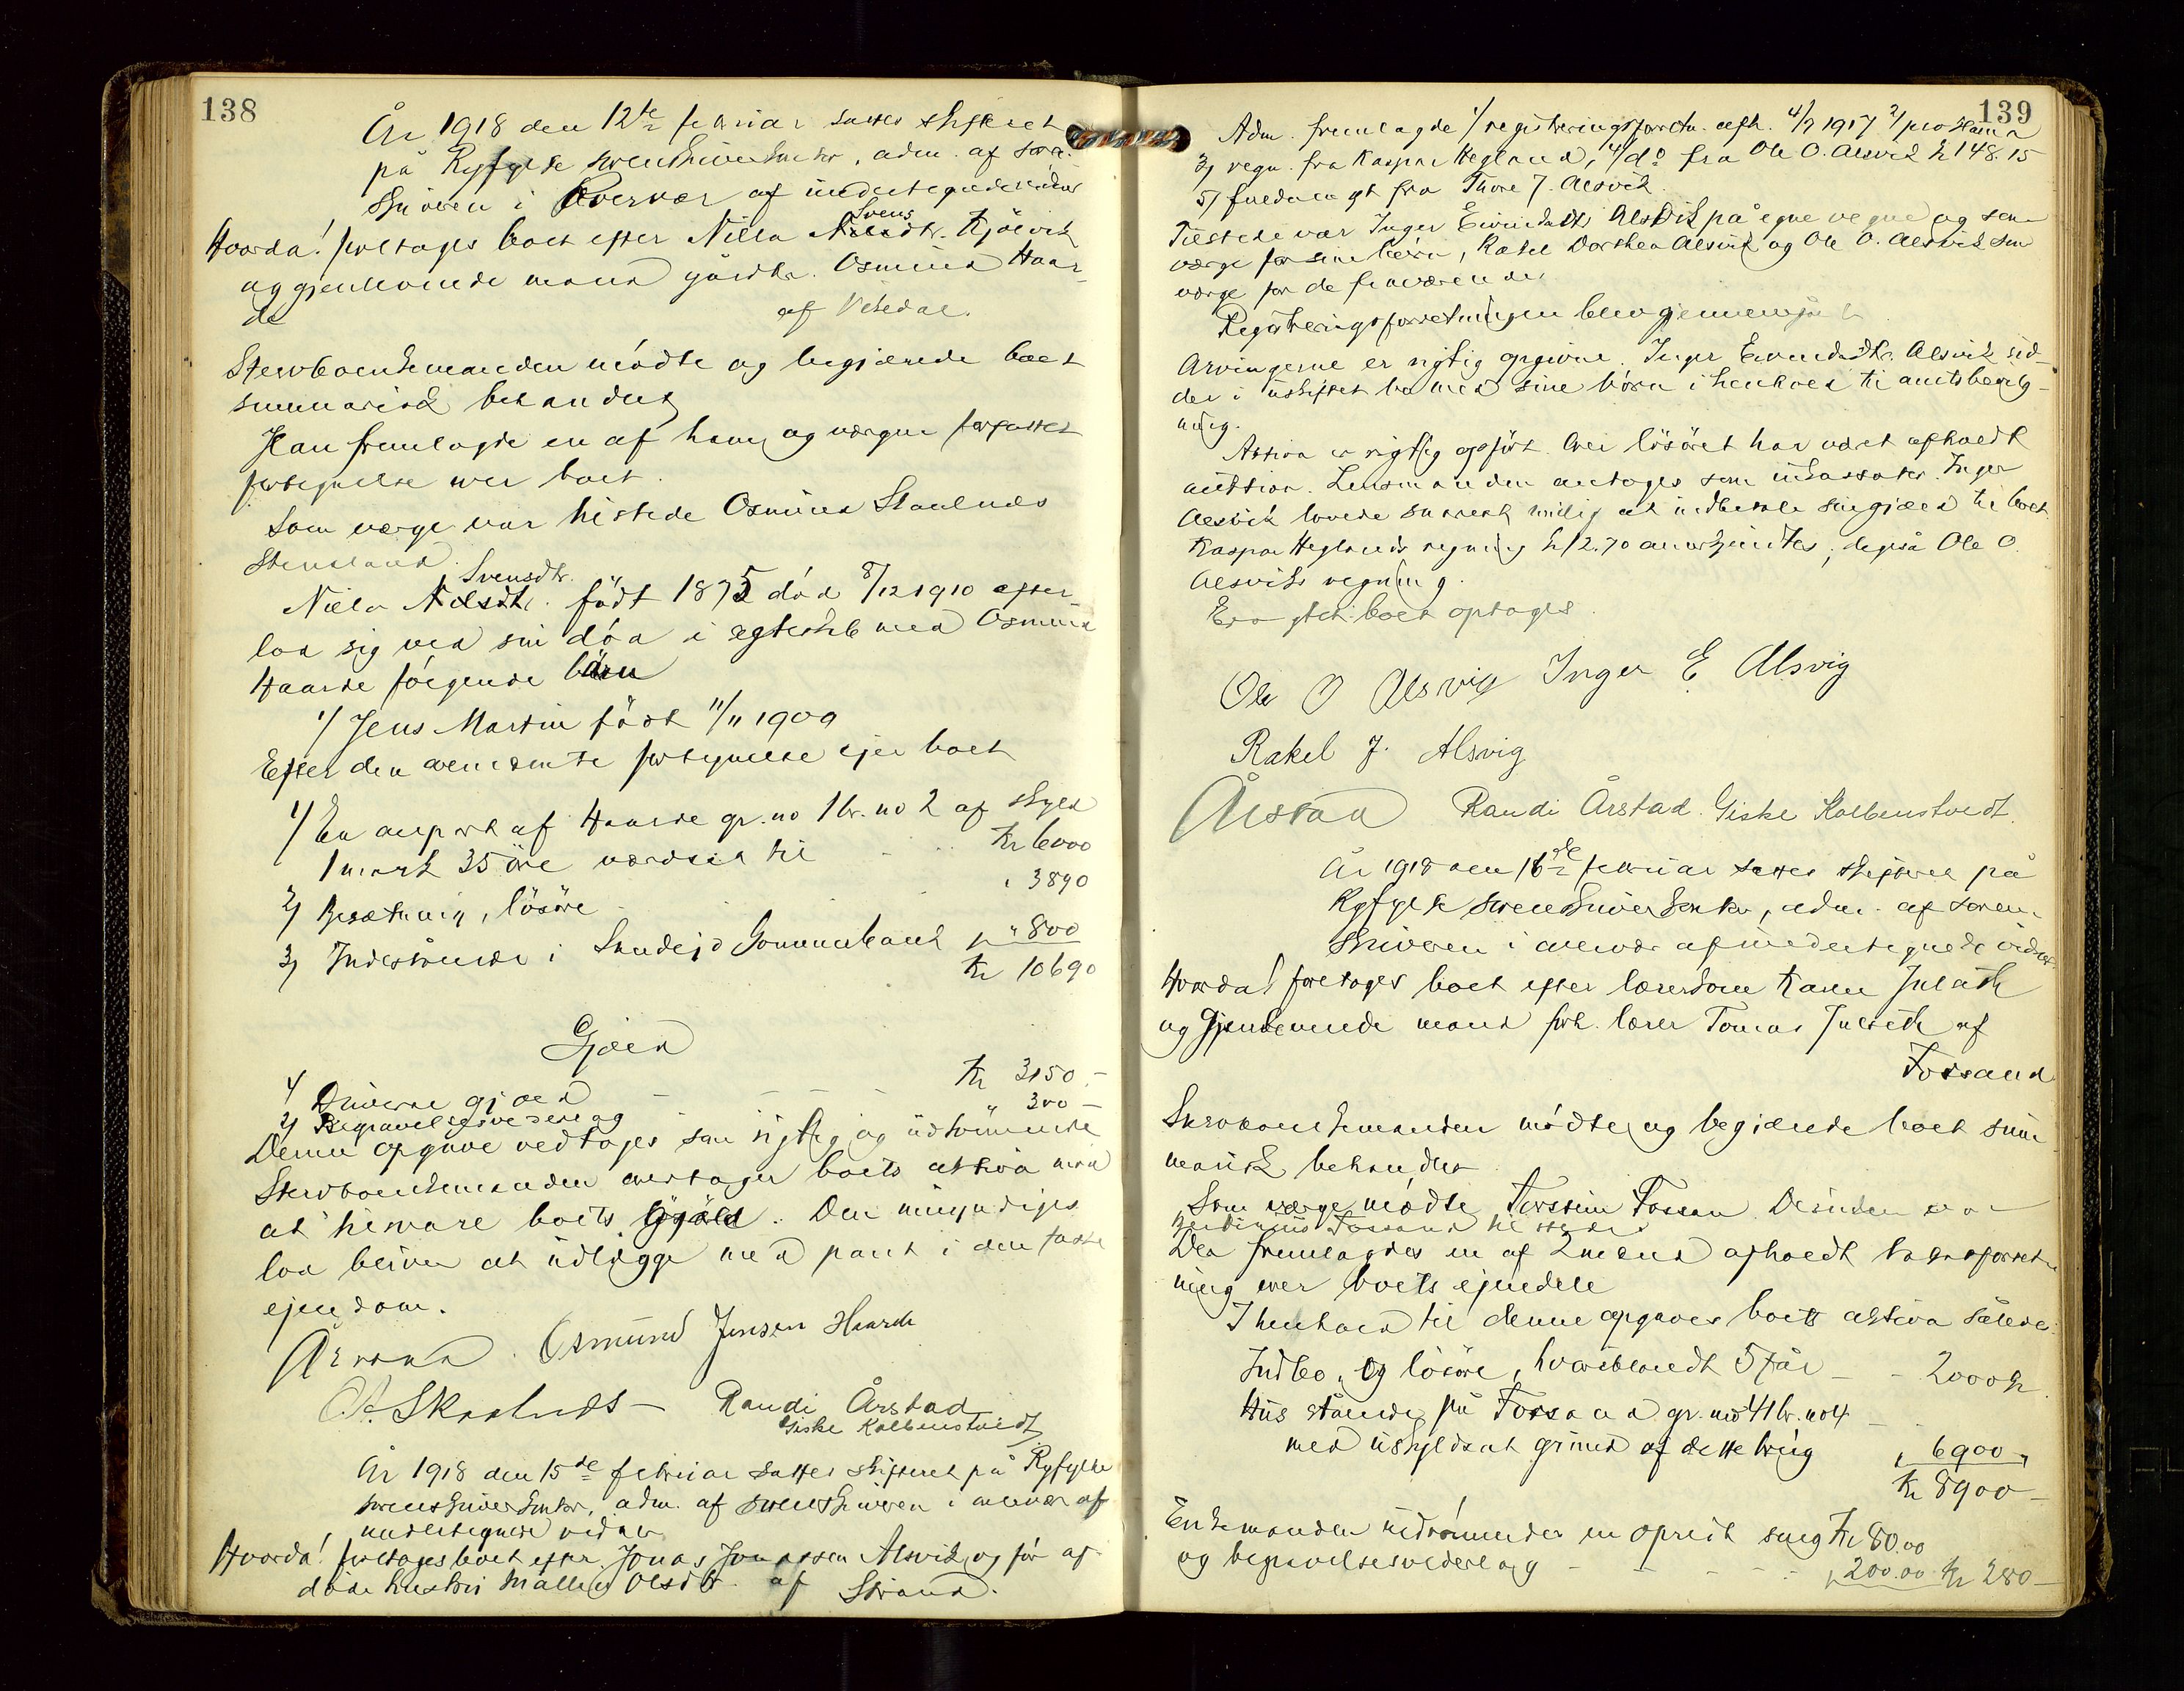 138
År 1918 den 12te februar sattes skifteret
på Ryfylke sorenskriverkontor, adm. af soren
skriveren i overvær af undertegnede vidner
Hvorda! foretages boet efter Nilla Svens Nilsdtr. Kjölvik
og gjenlevende mand gårdbr. Osmund Haar-
de af
Stervboenkemanden mödte og begjærede boet
summarisk behandlet
Han fremlagde en af ham og værgen forfattet
fortegnelse over boet.
Som værge var tilstede Osmund Skaalnæs
Stensland.
Nilla Nilsdtr. Svensdtr. födt 1875 död 8/12 1910 efter-
lod sig ved sin död i egteskab med Osmund
Haarde fölgende börn
1/ Jens Martin födt 11/11 1909
Efter den ovennævnte fortegnelse ejer boet
1/ En anpart af Haarde gr. no 1 br. no 2 af skyld
1 mark 35 öre værdsat til - - Kr 6000
2/ Besætning, lösöre - " 3890
3/ Indestående i Sandeid Kommunebank " 800
Kr 10690
Gjæld
1/ Diverse gjæld - - - Kr 3150.-
2/ Begravelsesvederlag " 300 -
Denne opgave vedtages som rigtig og udtömmende
Stervboenkemanden overtager boets aktiva mod
at tilsvare boets gjæld. Den umyndiges
lod bliver at udlægge med pant i den faste
ejendom.
Årstad. Osmund Jensen Haarde
O. Skaalnes - Randi Årstad
Giske Kolbenstvedt
År 1918 den 15de februar sattes skifteret på Ryfylke
sorenskriverkontor, adm. af sorenskriveren i overvær af
undertegnede vidner
Hvorda! foretages boet efter Jonas Jonassen Alsvik og för af-
döde hustru Malla Olsdtr. af Strand.
139
Adm. fremlagde 1/ registreringsforretn. afh. 4/9 1917 2/ proklama
3/ regn. fra Kaspar Hegland, 4/ do fra Ole O. Alsvik kr 148.15
5/ fra Thore J. Alsvik.
Tilstede var Inger Eivindsdtr Alsvik på egne vegne og som
værge for sine börn, Rakel Dorthea Alsvik og Ole O. Alsvik som
værge for de fraværende
Registreringsforretningen blev gjennemgået
Arvingerne er rigtig opgivne. Inger Eivindsdtr. Alsvik sid-
der i uskiftet bo med sine börn i henhold til amtsbevilg-
ning.
Aktiva er rigtig opfört. Over lösöret har været afholdt
auktion. Lensmanden antages som inkassator. Inger
Alsvik lovede snarest mulig at indbetale sin gjæld til boet.
Kaspar Heglands regning kr 12.70 anerkjendtes, ligeså Ole O.
Alsviks regning.
boet optages.
Ole O Alsvig Inger E Alsvig
Rakel J. Alsvig
Årstad Randi Årstad. Giske Kolbenstvedt.
År 1918 den 16de februar sattes skifteret på
Ryfylke sorenskriverkontor, adm. af soren-
skriveren i overvær af undertegnede vidner
Hvorda! foretages boet efter lærerkone Karen
og gjenlevende mand forh. lærer Tomas af
Fossand
Stervboenkemanden mödte og begjærede boet sum
marisk behandlet
Som værge mödte Torstein Fossan. Desuden var
Fossand tilstede.
Der fremlagdes en af 2 mænd afholdt takstforret-
ning over boets ejendele
I henhold til denne opgaves boets aktiva således:
Indbo og lösöre, hvoriblandt 5 får - - 2000 kr.
Hus stående på Fossand gr. no 41 br. no 4 - -
med uskyldsat grund af dette brug " 6900 "
Kr 8900 -
Enkemanden udrömmede en opredt seng Kr 80.00
og begravelsesvederlag - - - - " 200.00 Kr 280 -